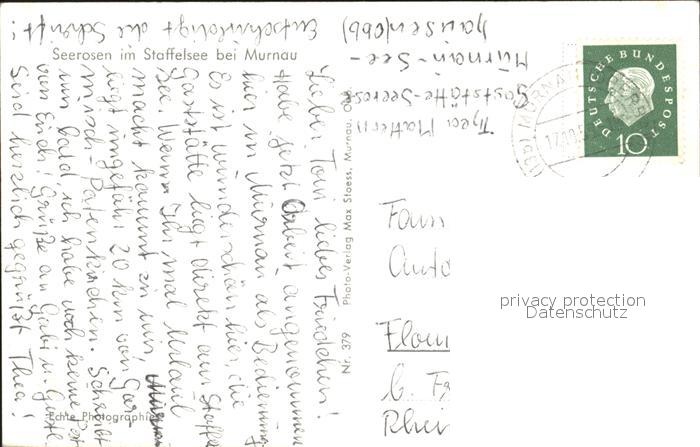 Entschuldigt die Schrift!
Seerosen im Staffelsee bei Murnau
Lieber Toni liebes Friedchen!
Habe jetzt Arbeit angenommen
hier in Murnau als Bedienung
Es ist wunderschön hier, die
Gaststätte liegt direkt am Staffel
See. Wenn Ihr mal Urlaub
macht kommt zu mir,
liegt ungefähr 20 km von Gar-
misch-Patenkirchen. Schreibt
mir bald, ich habe noch keine Post
von Euch! Grüße an Gabi u.
Seid herzlich gegrüßt Thea!
Thea Mattern
Gaststätte-Seerose
Murnau-See-
hausen (Obb)
Nr. 379 Photo-Verlag Max Stoess, Murnau.
Echte Photographie
DEUTSCHE BUNDESPOST
10
(13b) MURNAU
Fam
Auto
Flor
b. Fr
Rhei
privacy protection
Datenschutz